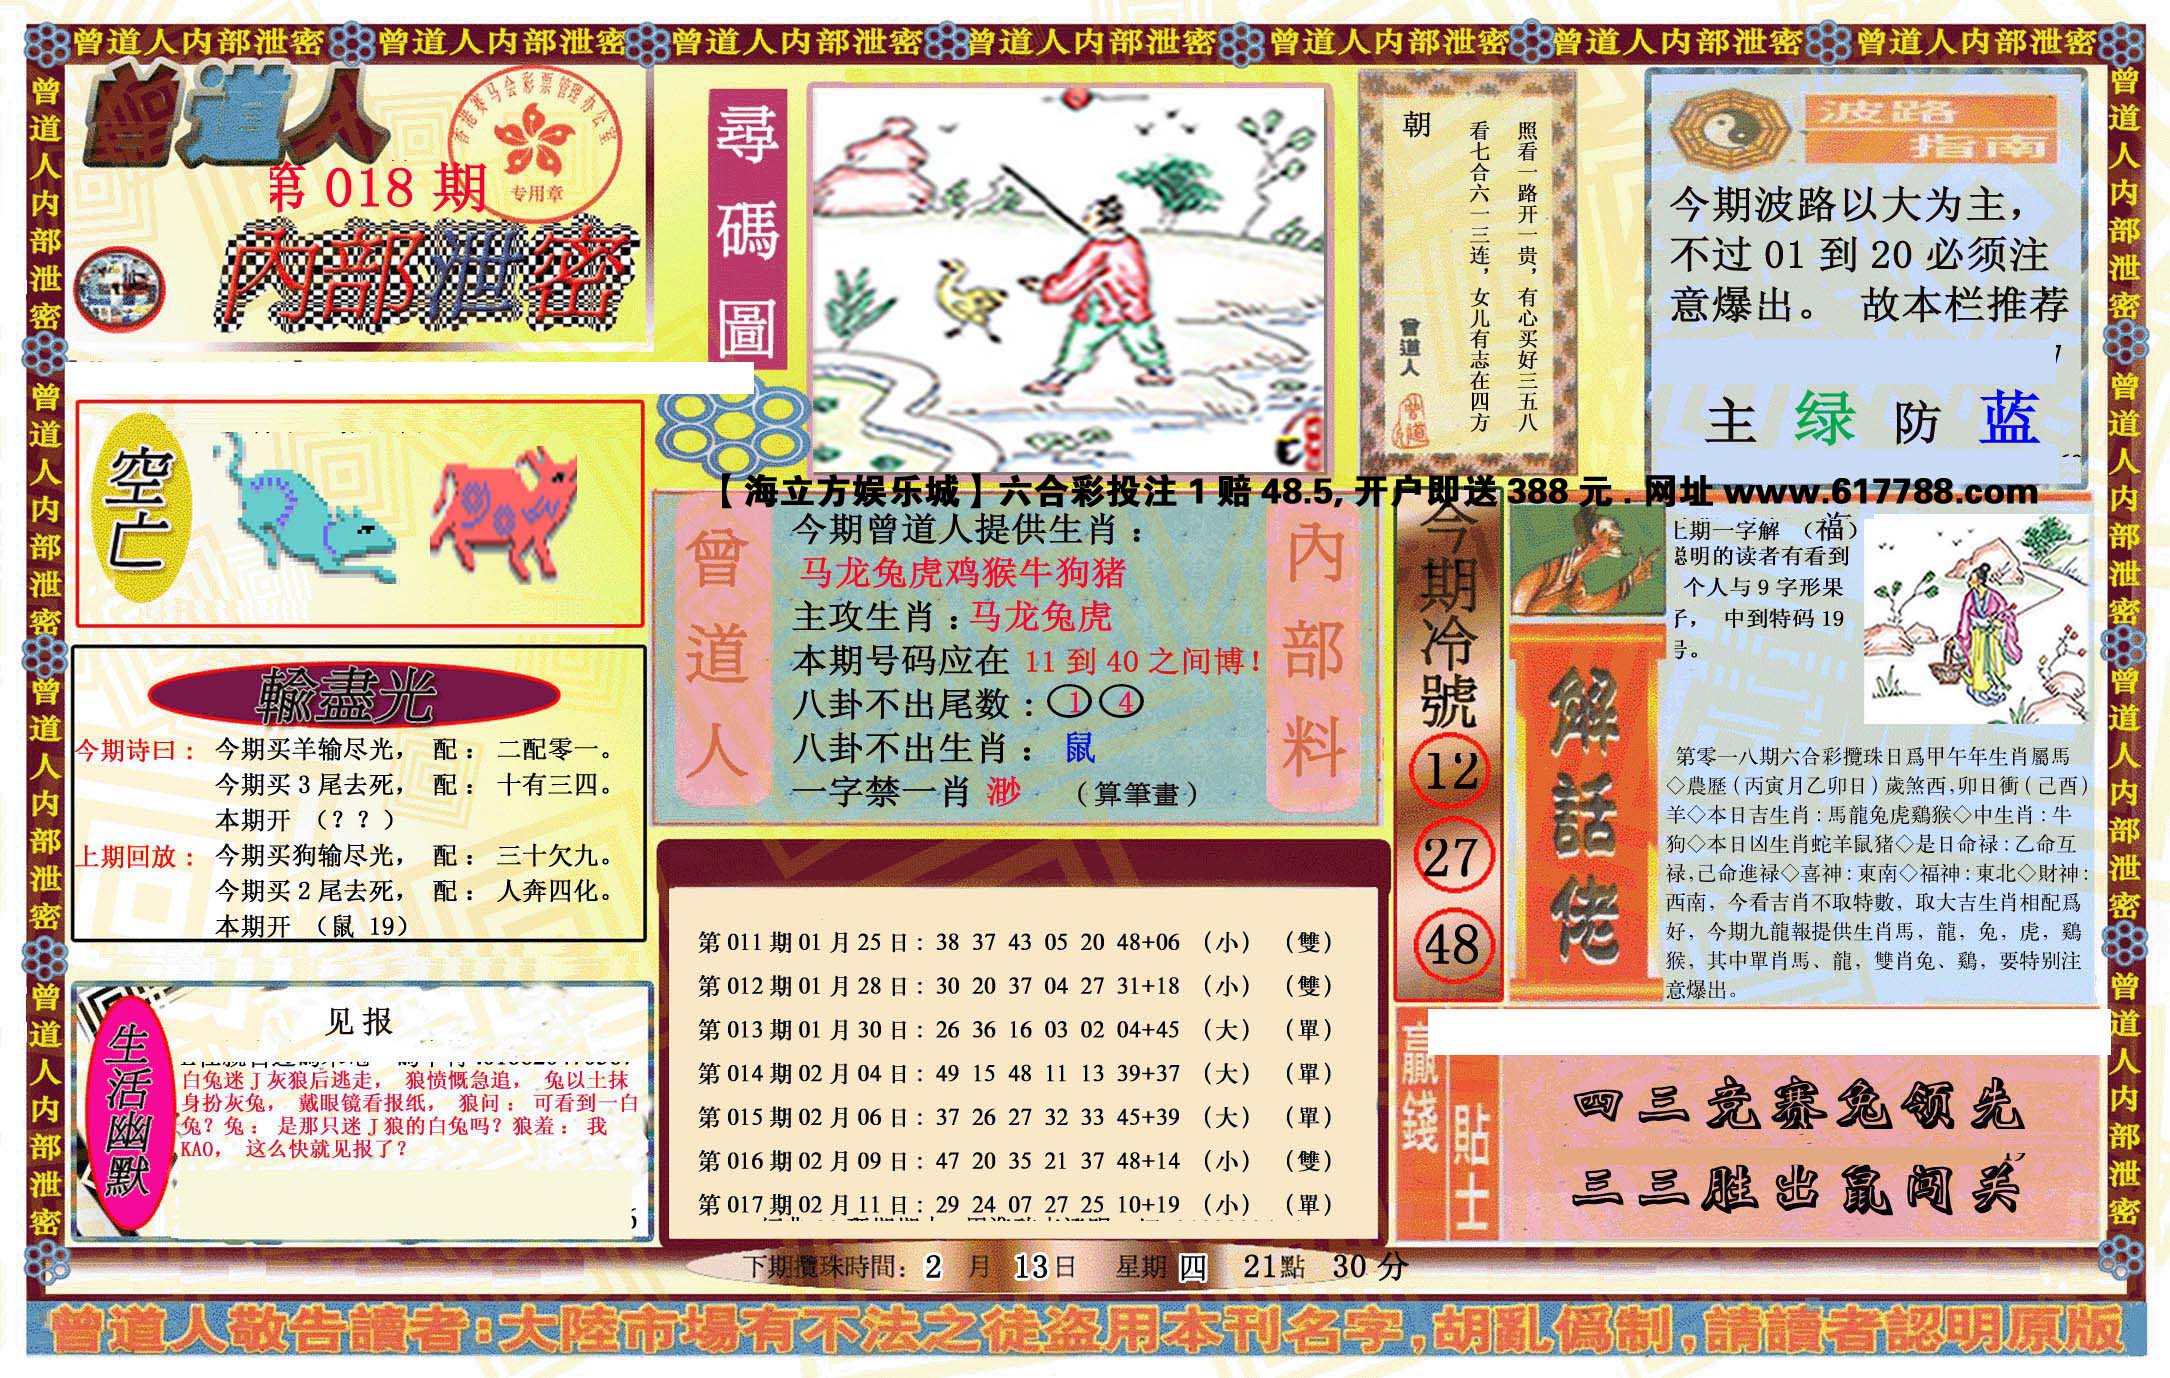 曾道人内部泄密 曾道人内部泄密 曾道人内部泄密 曾道人内部泄密 曾道人内部泄密 曾道人内部泄密 曾道人内部泄密
曾道人内部泄密 曾道人内部泄密 曾道人内部泄密 曾道人内部泄密
曾道人
香港赛马会彩票管理办公室
专用章
第 018 期
内部泄密
尋碼圖
朝
照看一路开一贵，有心买好三五八
看七合六一三连，女儿有志在四方
曾道人
波路
指南
今期波路以大为主，
不过 01 到 20 必须注
意爆出。 故本栏推荐
主 绿 防 蓝
空亡
【海立方娱乐城】六合彩投注 1 赔 48.5, 开户即送 388 元 . 网址 www.617788.com
輸盡光
今期诗曰： 今期买羊输尽光， 配： 二配零一。
今期买 3 尾去死， 配： 十有三四。
本期开 （？？）
上期回放： 今期买狗输尽光， 配： 三十欠九。
今期买 2 尾去死， 配： 人奔四化。
本期开 （鼠 19）
曾道人
内部料
今期曾道人提供生肖：
马龙兔虎鸡猴牛狗猪
主攻生肖：马龙兔虎
本期号码应在 11 到 40 之间博！
八卦不出尾数：1 4
八卦不出生肖： 鼠
一字禁一肖 渺 （算筆畫）
今期冷號
12
27
48
解話佬
上期一字解 （福）
聪明的读者有看到
个人与 9 字形果
子， 中到特码 19
号。
第零一八期六合彩攪珠日爲甲午年生肖屬馬
◇農歷（丙寅月乙卯日）歲煞西,卯日衝（己酉）
羊◇本日吉生肖：馬龍兔虎鷄猴◇中生肖：牛
狗◇本日凶生肖蛇羊鼠猪◇是日命禄：乙命互
禄,己命進禄◇喜神：東南◇福神：東北◇財神：
西南，今看吉肖不取特數，取大吉生肖相配爲
好，今期九龍報提供生肖馬，龍，兔，虎，鷄
猴，其中單肖馬、龍，雙肖兔、鷄，要特别注
意爆出。
生活幽默
见 报
白兔迷了灰狼后逃走， 狼愤慨急追， 兔以土抹
身扮灰兔， 戴眼镜看报纸， 狼问： 可看到一白
兔？兔： 是那只迷了狼的白兔吗？狼羞： 我
KAO， 这么快就见报了？
第 011 期 01 月 25 日：38 37 43 05 20 48+06 （小） （雙）
第 012 期 01 月 28 日：30 20 37 04 27 31+18 （小） （雙）
第 013 期 01 月 30 日：26 36 16 03 02 04+45 （大） （單）
第 014 期 02 月 04 日：49 15 48 11 13 39+37 （大） （單）
第 015 期 02 月 06 日：37 26 27 32 33 45+39 （大） （單）
第 016 期 02 月 09 日：47 20 35 21 37 48+14 （小） （雙）
第 017 期 02 月 11 日：29 24 07 27 25 10+19 （小） （單）
贏錢
貼士
四三竞赛兔领先
三三胜出鼠闯关
下期攪珠時間：2 月 13日 星期 四 21點 30 分
曾道人内部泄密 曾道人内部泄密 曾道人内部泄密 曾道人内部泄密
曾道人敬告讀者:大陸市場有不法之徒盗用本刊名字,胡亂僞制,請讀者認明原版